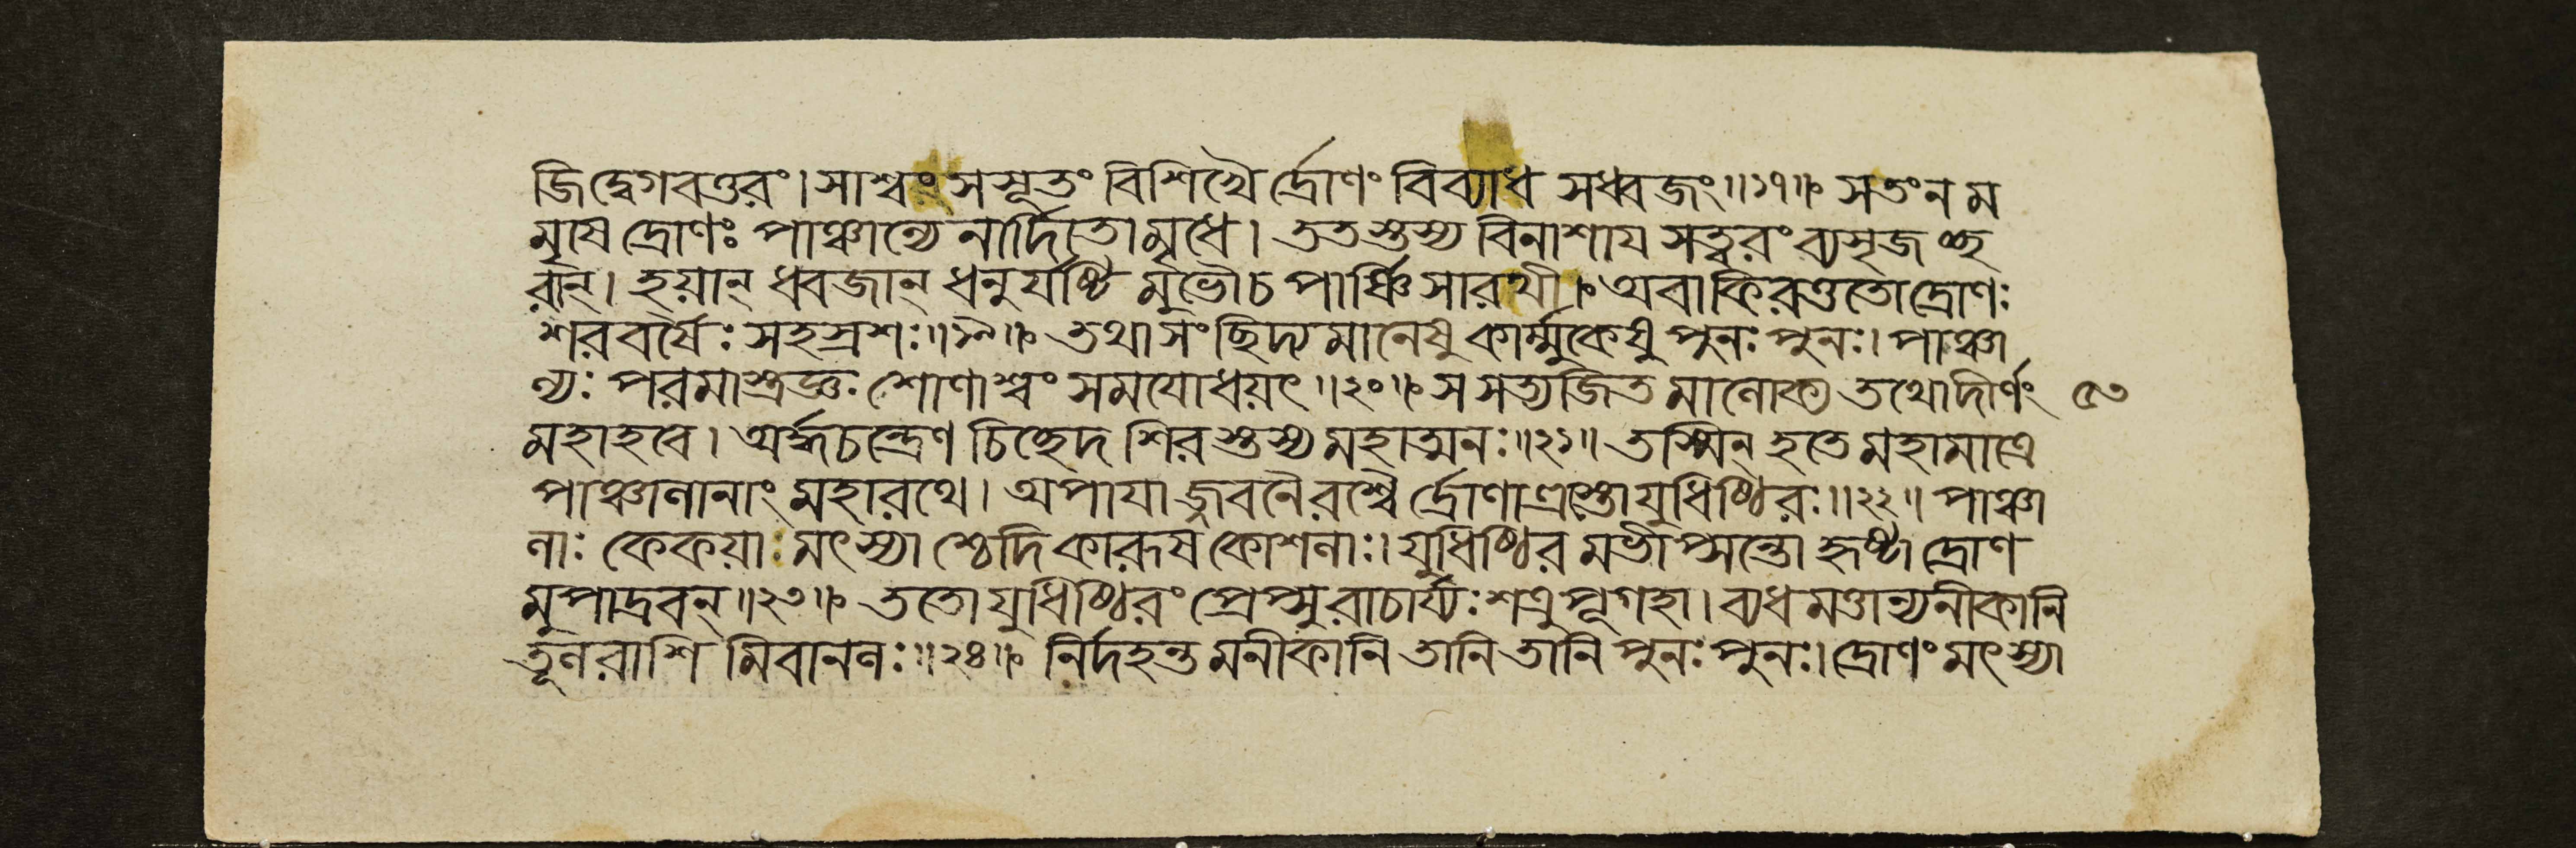 জিদ্বেগবত্তরং। সাশ্বং সসূতং বিশিখৈ র্দ্রোণং বিব্যাধ সধ্বজং॥১৭॥ সতং ন ম
মৃষে দ্রোণঃ পাঞ্চাল্যে নার্দিতো মৃধে। ততস্তস্য বিনাশায সত্বরং ব্যসৃজ চ্ছ
রান্। হয়ান্ ধ্বজান্ ধনুর্যষ্টি মুভৌ চ পার্ষ্ণি সারথী। অবাকিরত্ততো দ্রোণঃ
শরবর্ষৈঃ সহস্রশঃ॥১৯॥ তথা সংছিদ্যমানেষু কার্ম্মুকেষু পুনঃ পুনঃ। পাঞ্চা
ল্যঃ পরমাস্ত্রজ্ঞঃ শোণাশ্বং সমযোধয়ৎ॥২০॥ স সত্যজিত মালোক্য তথোদীর্ণং ৫৩
মহাহবে। অর্দ্ধচন্দ্রেণ চিচ্ছেদ শিরস্তস্য মহাত্মনঃ॥২১॥ তস্মিন্ হতে মহামাত্রে
পাঞ্চালানাং মহারথে। অপাযা জ্জবনৈরশ্বৈ র্দ্রোণাত্রস্তো যুধিষ্ঠিরঃ॥২২॥ পাঞ্চা
লাঃ কেকয়াঃ মৎস্যা শ্চেদি কারূষ কোশলাঃ। যুধিষ্ঠির মভীপ্সন্তো হৃষ্টা দ্রোণ
মুপাদ্রবন্॥২৩॥ ততো যুধিষ্ঠিরং প্রেপ্সু রাচার্য্যঃ শত্রুপূগহা। ব্যধমত্তান্যনীকানি
তূলরাশি মিবানলঃ॥২৪॥ নির্দহন্ত মনীকানি তানি তানি পুনঃ পুনঃ। দ্রোণং মৎস্যা